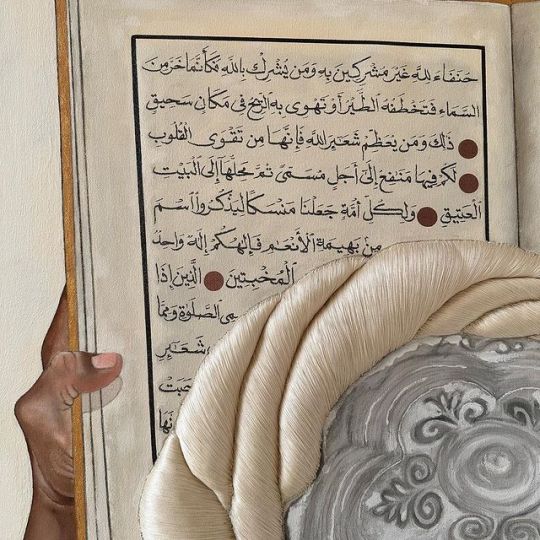 حُنَفَاءَ لِلَّهِ غَيْرَ مُشْرِكِينَ بِهِ وَمَن يُشْرِكْ بِاللَّهِ فَكَأَنَّمَا خَرَّ مِنَ
السَّمَاءِ فَتَخْطَفُهُ الطَّيْرُ أَوْ تَهْوِى بِهِ الرِّيحُ فِى مَكَانٍ سَحِيقٍ
ذَلِكَ وَمَن يُعَظِّمْ شَعَٰٓئِرَ اللَّهِ فَإِنَّهَا مِن تَقْوَى الْقُلُوبِ
لَكُمْ فِيهَا مَنَٰفِعُ إِلَىٰ أَجَلٍ مُّسَمًّى ثُمَّ مَحِلُّهَا إِلَى الْبَيْتِ
الْعَتِيقِ وَلِكُلِّ أُمَّةٍ جَعَلْنَا مَنسَكًا لِّيَذْكُرُوا اسْمَ
مِن بَهِيمَةِ الْأَنْعَٰمِ فَإِلَٰهُكُمْ إِلَٰهٌ وَاحِدٌ
الْمُخْبِتِينَ الَّذِينَ إِذَا
الصَّلَوٰةِ وَمِمَّا
شَعَٰٓئِرِ